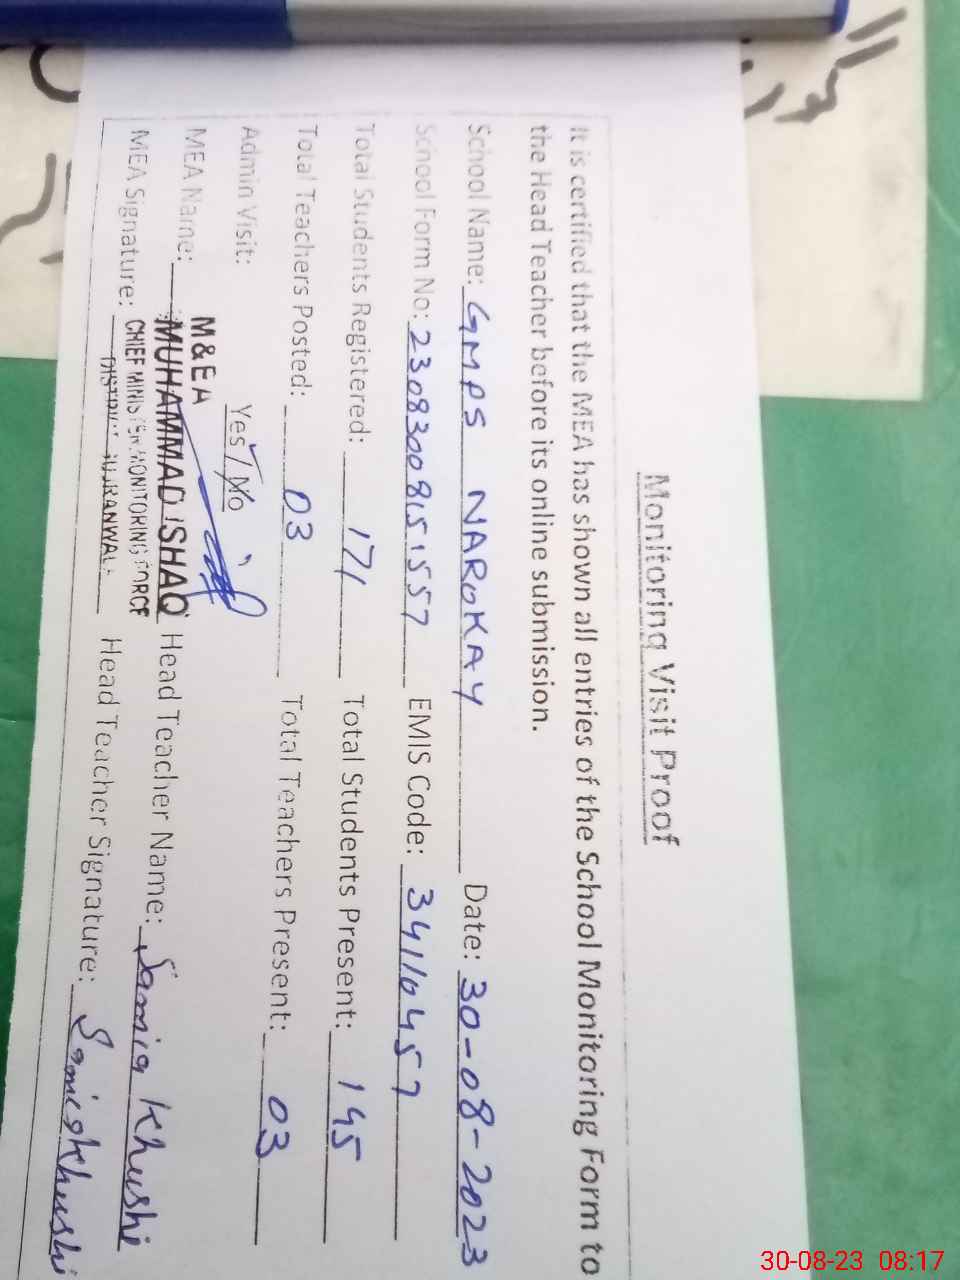 Monitoring Visit Proof
It is certified that the MEA has shown all entries of the School Monitoring Form to
the Head Teacher before its online submission.
School Name: GMPS NAROKAY Date: 30-08-2023
School Form No: 23083008151557 EMIS Code: 34110457
Total Students Registered: 171 Total Students Present: 145
Total Teachers Posted: 03 Total Teachers Present: 03
Admin Visit: Yes / No
M&EA
MEA Name: MUHAMMAD ISHAQ Head Teacher Name: Samia Khushi
CHIEF MINISTER MONITORING FORCE
MEA Signature: DISTRICT GUJRANWALA Head Teacher Signature: Samia Khushi
30-08-23 08:17